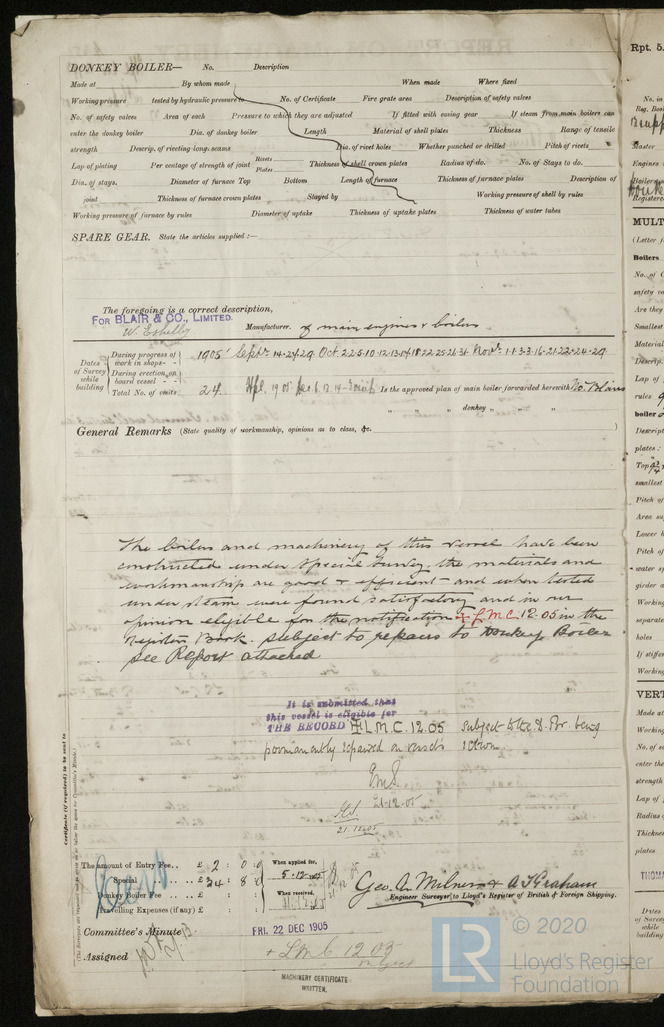 DONKEY BOILER— No. Description
Made at By whom made When made Where fixed
Working pressure tested by hydraulic pressure to No. of Certificate Fire grate area Description of safety valves
No. of safety valves Area of each Pressure to which they are adjusted If fitted with easing gear If steam from main boilers can
enter the donkey boiler Dia. of donkey boiler Length Material of shell plates Thickness Range of tensile
strength Descrip. of riveting long. seams Dia. of rivet holes Whether punched or drilled Pitch of rivets
Lap of plating Per centage of strength of joint Rivets Plates Thickness of shell crown plates Radius of do. No. of Stays to do.
Dia. of stays. Diameter of furnace Top Bottom Length of furnace Thickness of furnace plates Description of
joint Thickness of furnace crown plates Stayed by Working pressure of shell by rules
Working pressure of furnace by rules Diameter of uptake Thickness of uptake plates Thickness of water tubes
SPARE GEAR. State the articles supplied:—
The foregoing is a correct description,
FOR BLAIR & CO., LIMITED.
Manufacturer. of main engines & boilers
Dates of Survey while building
During progress of work in shops - - 1905 Sept. 14-24-29 Oct.
During erection on board vessel - - -
Total No. of visits 24 Is the approved plan of main boiler forwarded herewith
" " " donkey " " "
General Remarks (State quality of workmanship, opinions as to class, &c.
The boilers and machinery of this vessel have been
constructed under Special Survey, the materials and
workmanship are good & efficient and when tested
under steam were found satisfactory and in our
opinion eligible for the notification L.M.C. 12.05 in the
Register Book. subject to repairs to Donkey Boiler
see Report attached
It is submitted that
this vessel is eligible for
THE RECORD L.M.C. 12.05 subject to the D. Br. being
permanently repaired on vessels return
21.12.05
21.12.05
Certificate (if required) to be sent to
The amount of Entry Fee.. £ 2 : 0 : 0 When applied for,
Special .. .. £ 24 : 8 : 0 5.12.1905
Donkey Boiler Fee .. .. £ : : When received,
Travelling Expenses (if any) £ : :
Geo. A. Milner & A T Graham
Engineer Surveyor to Lloyd's Register of British & Foreign Shipping.
Committee's Minute
FRI. 22 DEC 1905
Assigned + L.M.C 12.05
MACHINERY CERTIFICATE
WRITTEN.
© 2020
LR
Lloyd's Register
Foundation
Rpt. 5.
No. in
Reg. Book
Master
Engines
Boilers
Registered
MULT
(Letter f
Boilers
No. of C
safety va
Are they
Smallest
Material
Descrip.
Lap of
rules
boiler
Descript
plates :
Top
smallest
Pitch of
Area su
Lower b
Pitch of
water s
girder a
Working
separate
holes
If stiffe
Working
VERT
Made at
Working
No. of sa
enter the
strength
Lap of
Radius o
Dia. of
plates
THOMA
Dates
of Survey
while
building